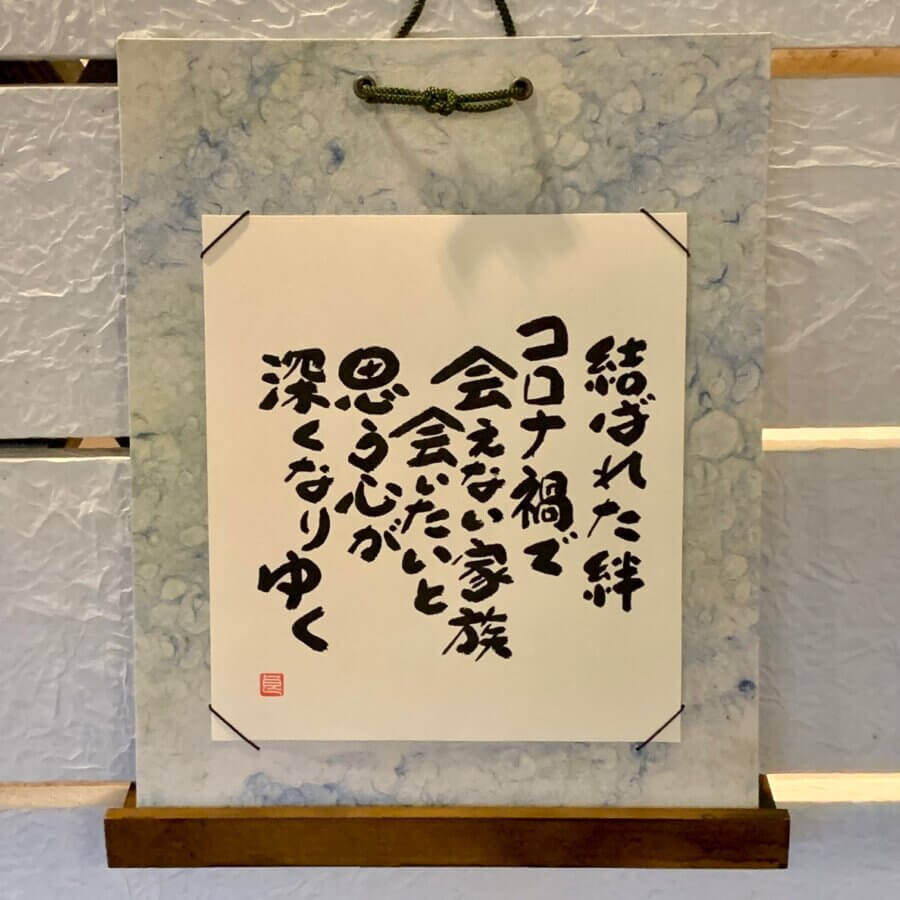 結ばれた絆
コロナ禍で
会えない家族
会いたいと
思う心が
深くなりゆく